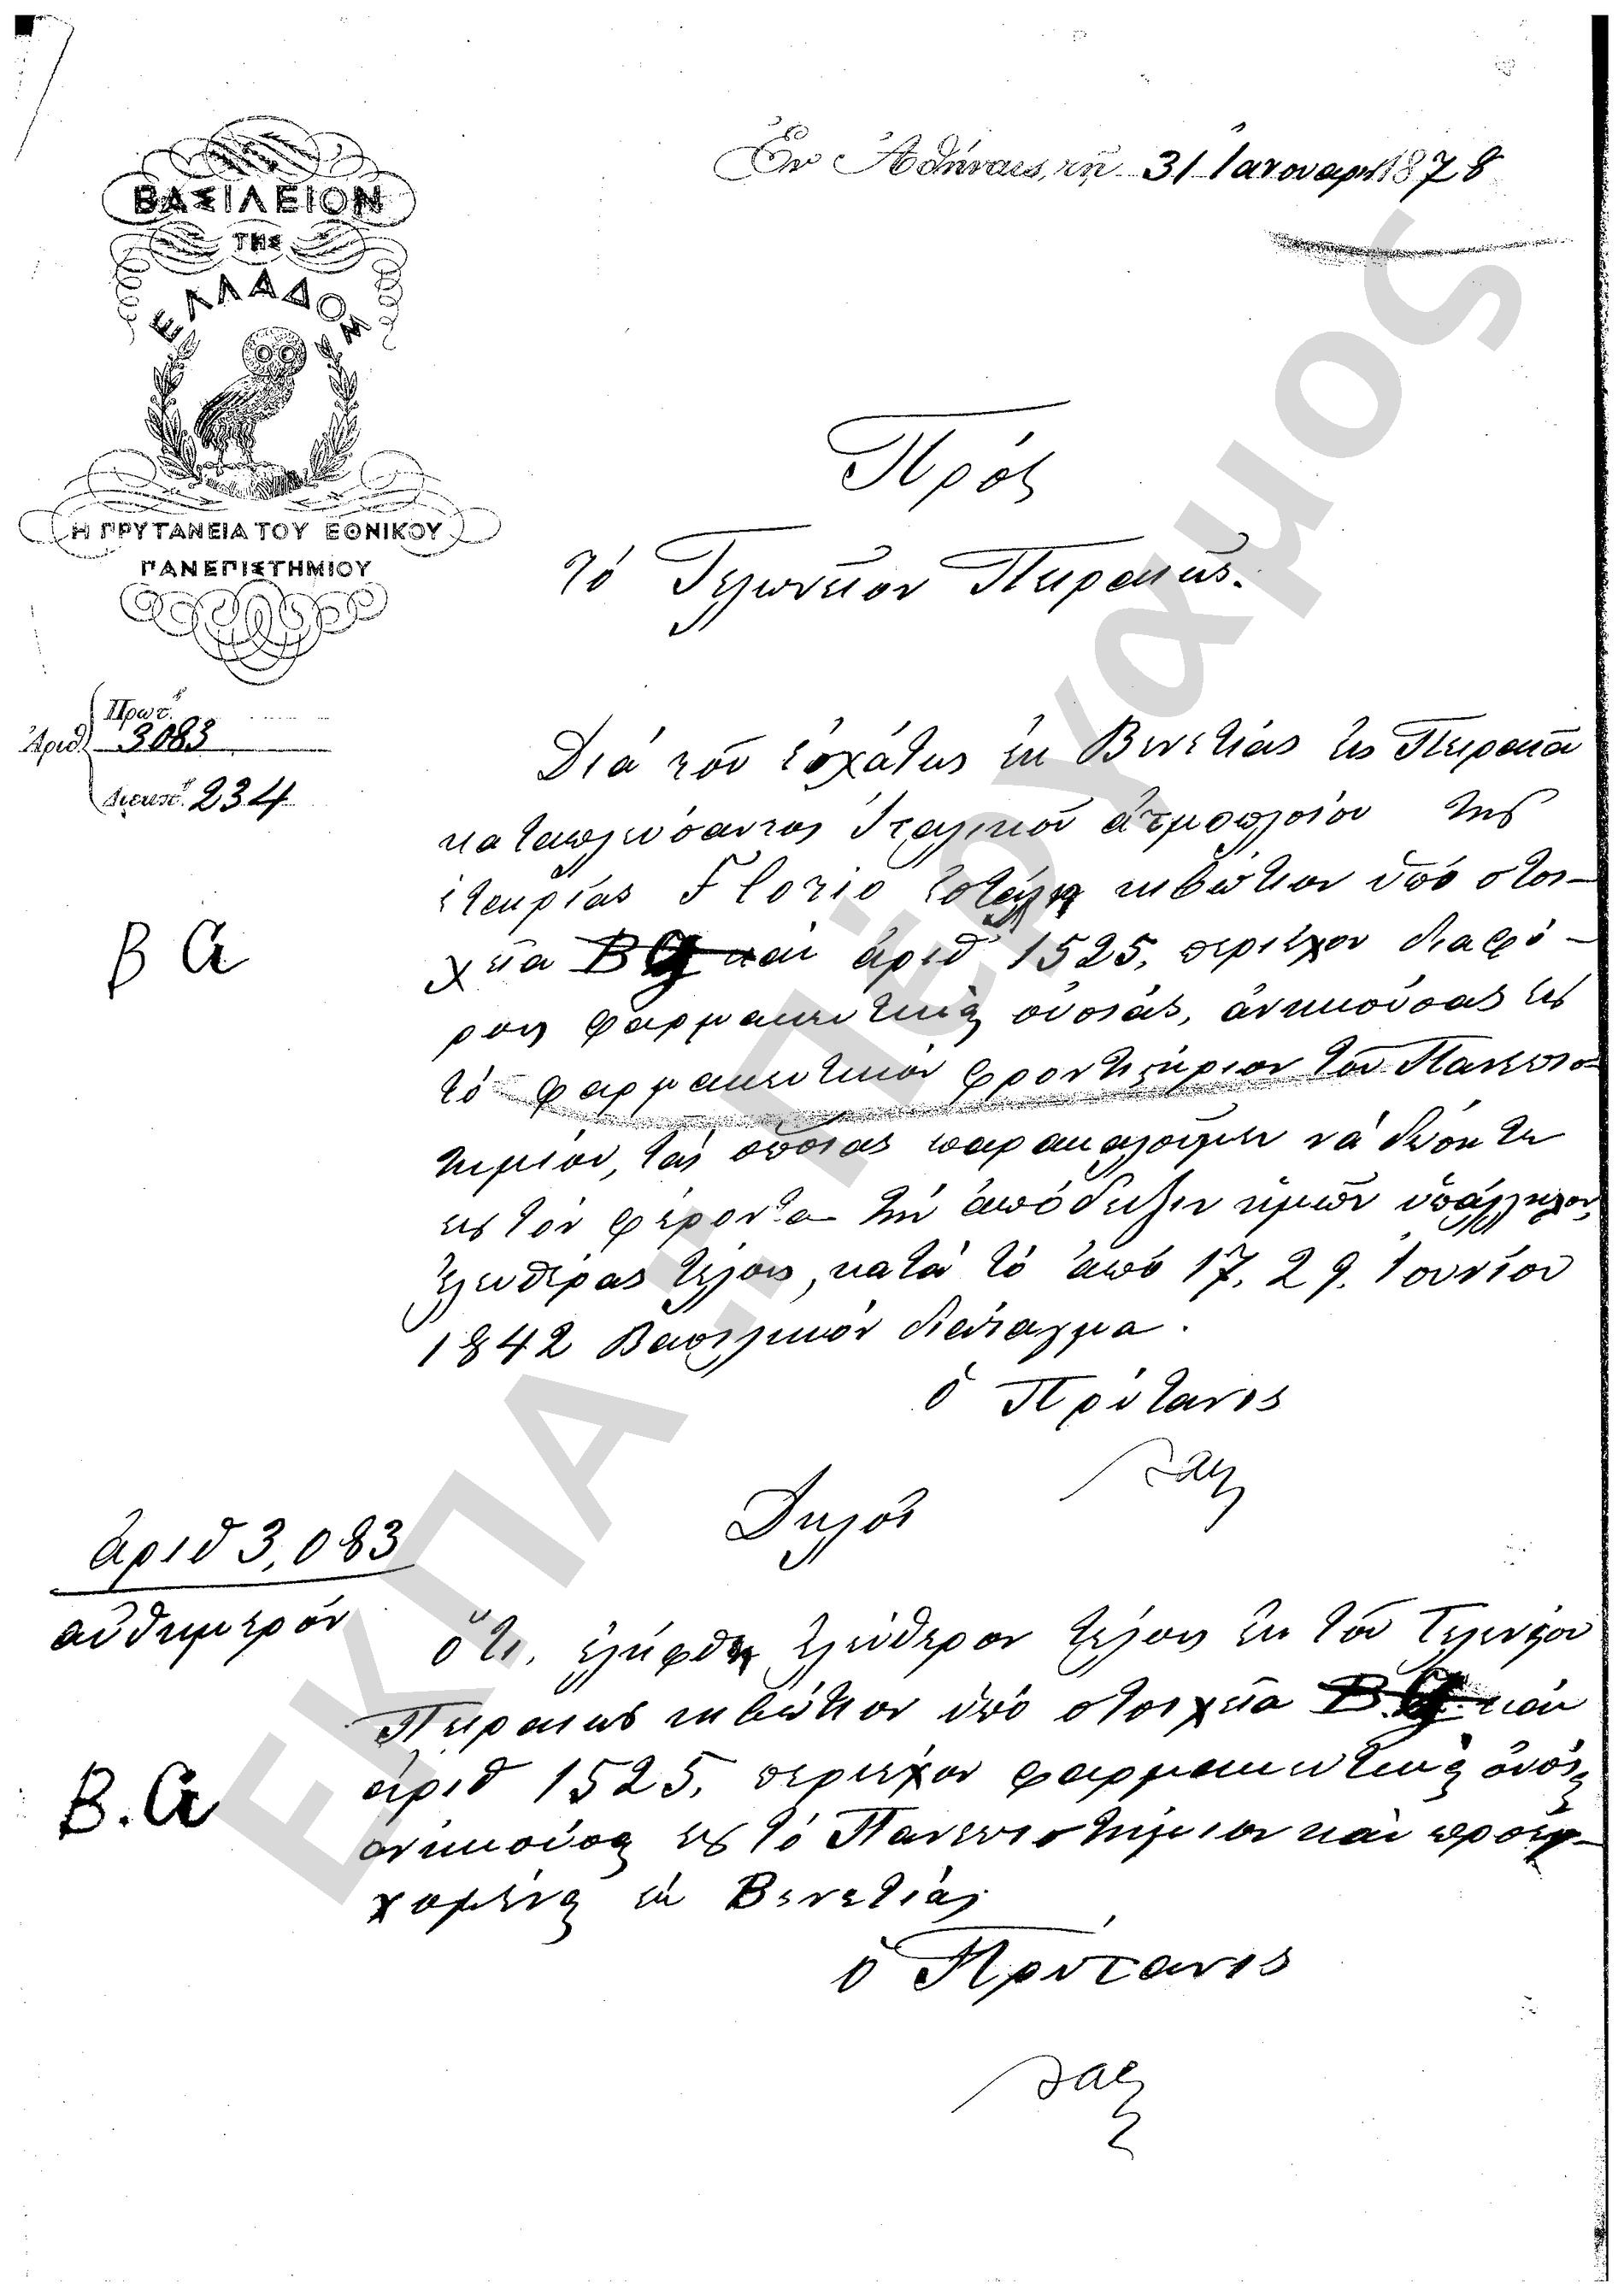 Ἐν Ἀθήναις, τῇ 31 Ἰανουαρ 1878
ΒΑΣΙΛΕΙΟΝ
ΤΗΣ
ΕΛΛΑΔΟΣ
Η ΠΡΥΤΑΝΕΙΑ ΤΟΥ ΕΘΝΙΚΟΥ
ΠΑΝΕΠΙΣΤΗΜΙΟΥ
Πρωτ.
Ἀριθ. 3083
Διεκπ. 234
Πρός
τό Τελωνεῖον Πειραιῶς.
Διά τοῦ ἐσχάτως ἐκ Βενετίας εἰς Πειραιᾶ
καταπλεύσαντος Ἰταλικοῦ ἀτμοπλοίου τῆς
ἑταιρίας Florio ἐστάλη κιβώτιον ὑπό στοι-
χεῖα Β καί ἀριθ 1525, περιέχον διαφό-
ρους φαρμακευτικάς οὐσίας, ἀνηκούσας εἰς
τό φαρμακευτικόν φροντιστήριον τοῦ Πανεπισ-
τημίου, τάς ὁποίας παρακαλοῦμεν νά δώσητε
εἰς τόν φέροντα τήν ἀπόδειξιν ἡμῶν ὑπάλληλον,
ἐλευθέρας τέλους, κατά τό ἀπό 17. 29. Ἰουνίου
1842 Βασιλικόν διάταγμα.
Β α
ὁ Πρύτανις
Δηλοῖ
ἀριθ 3,083
αὐθημερόν
ὅτι, ἐλήφθη ἐλεύθερον τέλους ἐκ τοῦ Τελωνείου
Πειραιῶς κιβώτιον ὑπό στοιχεῖα Β. καί
ἀριθ 1525, περιέχον φαρμακευτικάς οὐσίας
ἀνηκούσας εἰς τό Πανεπιστήμιον καί προερ-
χομένας ἐκ Βενετίας
Β. α
ὁ Πρύτανις
ΕΚΠΑ - Πέργαμος